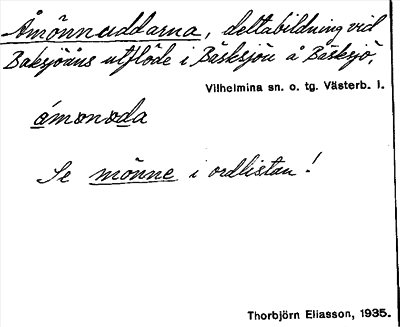 Åmönnuddarna, deltabildning vid
Baksjöåns utflöde i Bäsksjön å Bäsksjö,
Vilhelmina sn. o. tg. Västerb. l.
Se mönne i ordlistan!
Thorbjörn Eliasson, 1935.